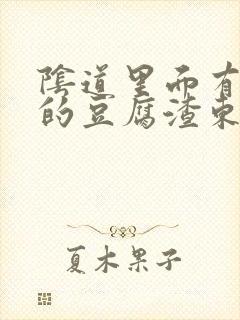 陰道里面有
的豆腐渣東
夏木果子